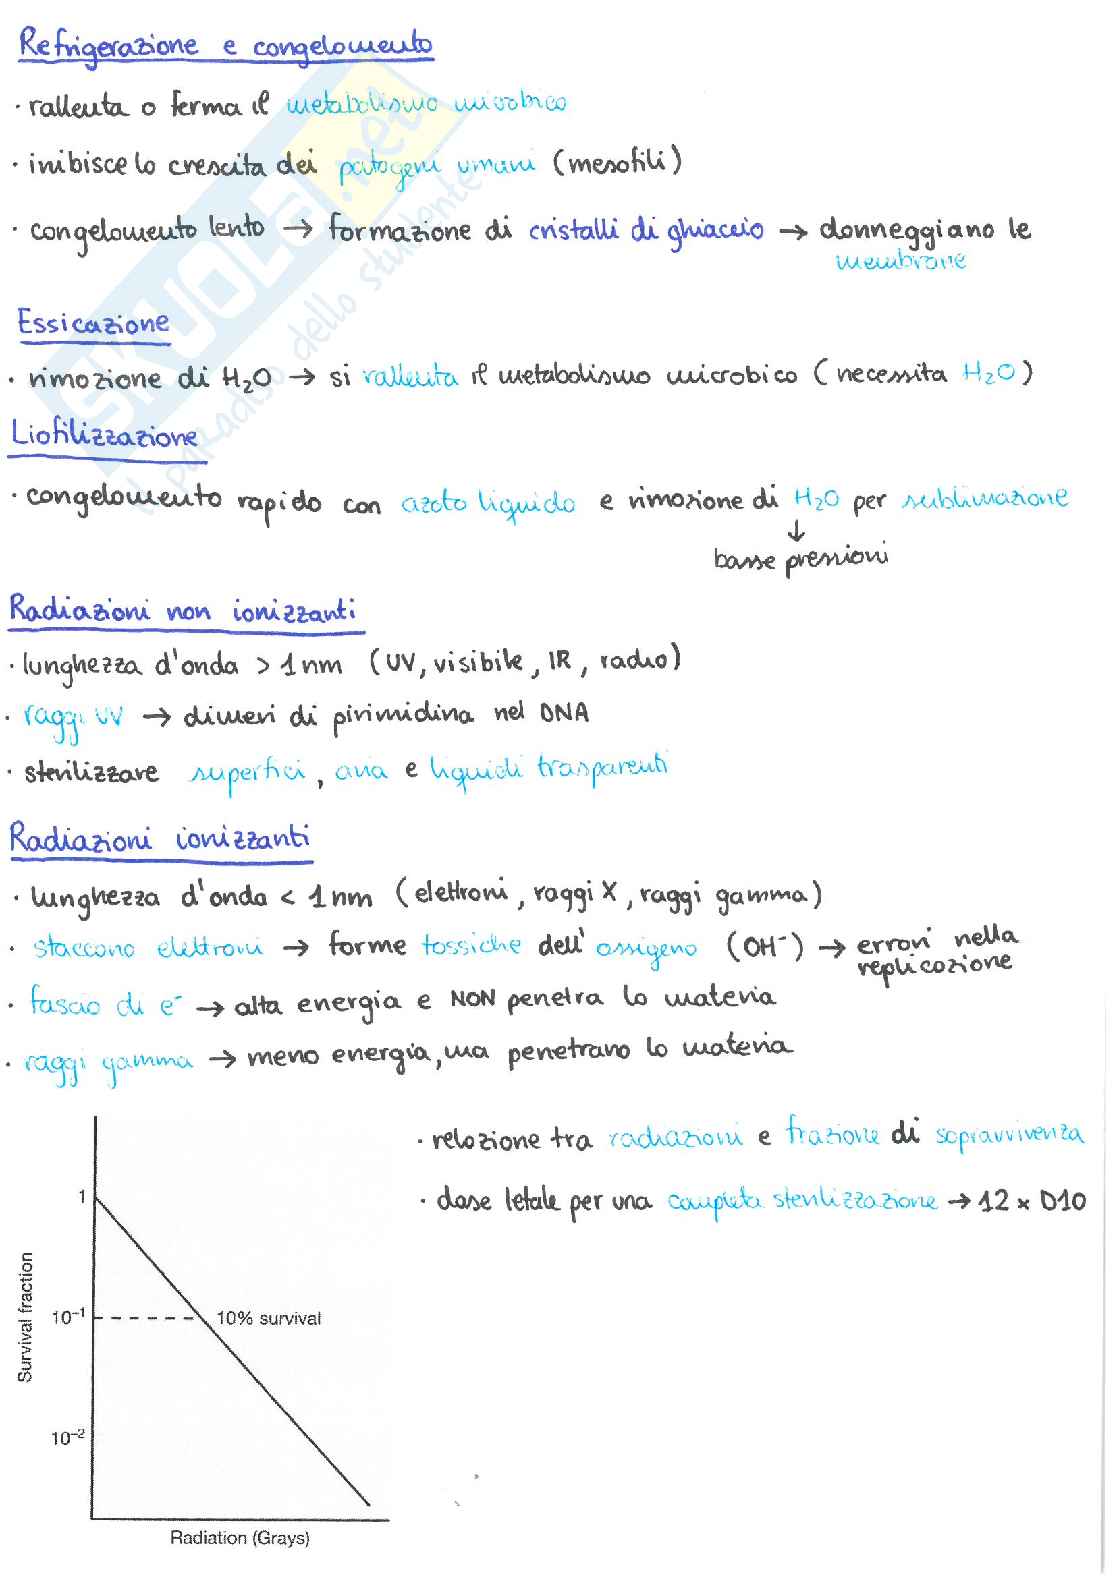 Refrigerazione e congelamento
· rallenta o ferma il metabolismo microbico
· inibisce la crescita dei patogeni umani (mesofili)
· congelamento lento → formazione di cristalli di ghiaccio → danneggiano le
membrane
Essicazione
· rimozione di H₂O → si rallenta il metabolismo microbico (necessita H₂O)
Liofilizzazione
· congelamento rapido con azoto liquido e rimozione di H₂O per sublimazione
↓
basse pressioni
Radiazioni non ionizzanti
· lunghezza d'onda > 1 nm (UV, visibile, IR, radio)
· raggi UV → dimeri di pirimidina nel DNA
· sterilizzare superfici, aria e liquidi trasparenti
Radiazioni ionizzanti
· lunghezza d'onda < 1 nm (elettroni, raggi X, raggi gamma)
· staccano elettroni → forme tossiche dell'ossigeno (OH⁻) → errori nella
replicazione
· fascio di e⁻ → alta energia e NON penetra la materia
· raggi gamma → meno energia, ma penetrano la materia
· relazione tra radiazioni e frazione di sopravvivenza
· dose letale per una completa sterilizzazione → 12 × D10
1
10⁻¹
10% survival
10⁻²
Survival fraction
Radiation (Grays)
SKUOLA.net
il paradiso dello studente